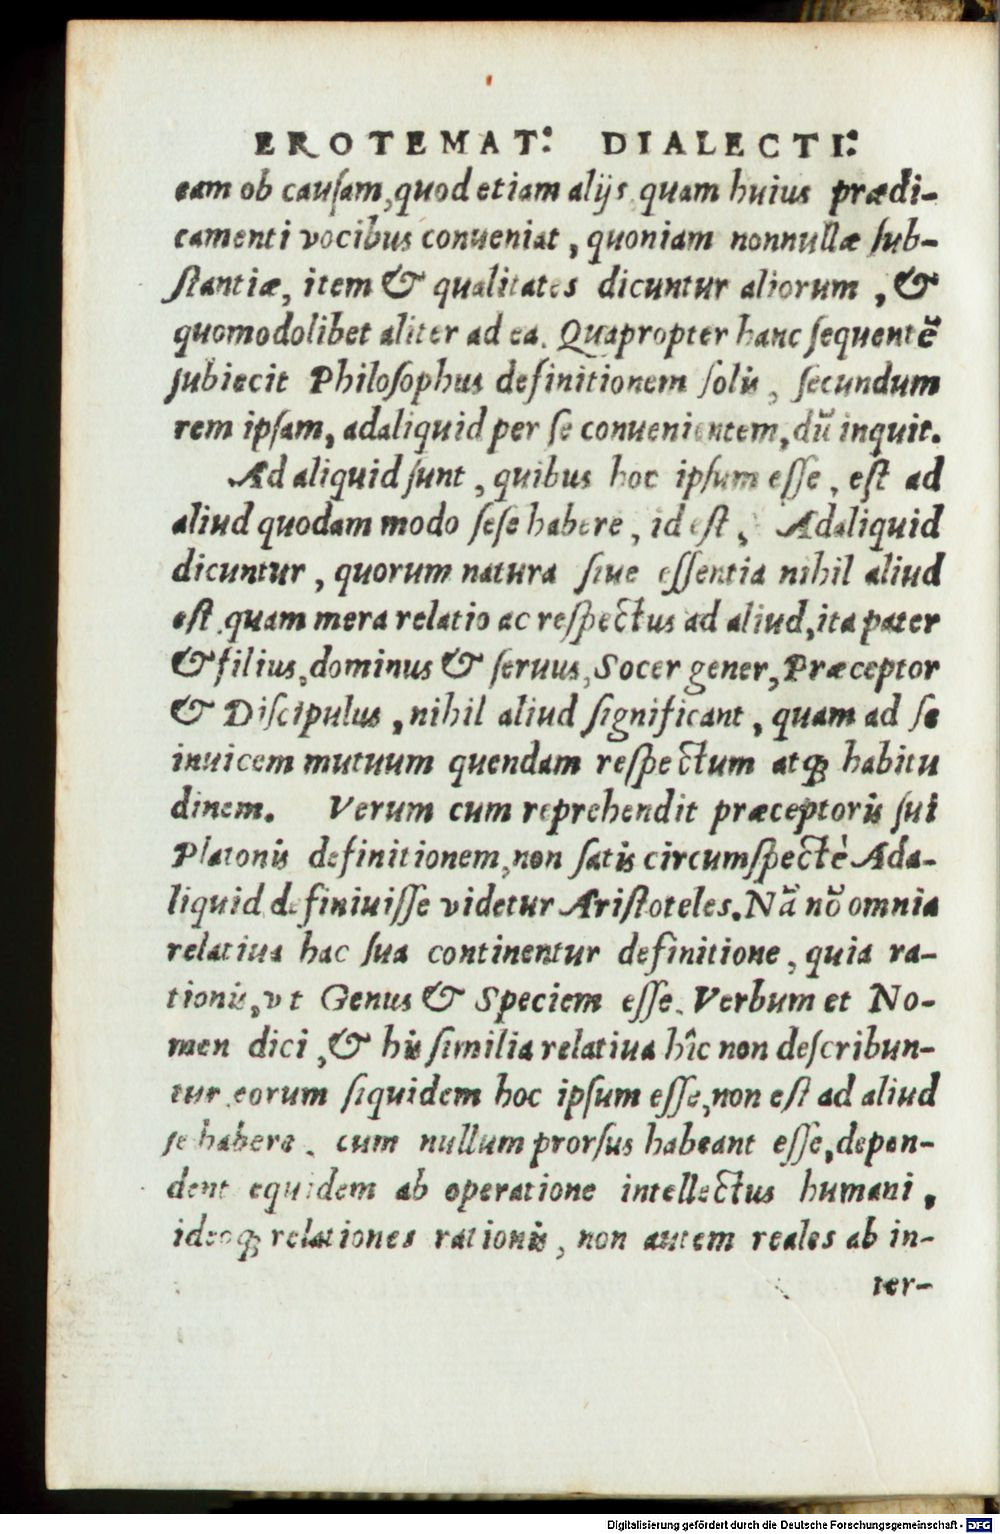 EROTEMAT: DIALECTI:
eam ob cauſam, quod etiam alijs quam huius prædi-
camenti vocibus conueniat, quoniam nonnullæ ſub-
ſtantiæ, item & qualitates dicuntur aliorum, &
quomodolibet aliter ad ea. Quapropter hanc ſequentē
ſubiecit Philoſophus definitionem ſolis, ſecundum
rem ipſam, adaliquid per ſe conuenientem, dū inquit.
Ad aliquid ſunt, quibus hoc ipſum eſſe, eſt ad
aliud quodam modo ſeſe habere, id eſt, Adaliquid
dicuntur, quorum natura ſiue eſſentia nihil aliud
eſt quam mera relatio ac reſpectus ad aliud, ita pater
& filius, dominus & ſeruus, Socer gener, Præceptor
& Diſcipulus, nihil aliud ſignificant, quam ad ſe
inuicem mutuum quendam reſpectum atqꝫ habitu
dinem. Verum cum reprehendit præceptoris ſui
Platonis definitionem, non ſatis circumſpectè Ada-
liquid definiuiſſe videtur Ariſtoteles. Nā nō omnia
relatiua hac ſua continentur definitione, quia ra-
tionis, vt Genus & Speciem eſſe. Verbum et No-
men dici, & his ſimilia relatiua hîc non deſcribun-
tur eorum ſiquidem hoc ipſum eſſe, non eſt ad aliud
ſe habere. cum nullum prorſus habeant eſſe, depen-
dent equidem ab operatione intellectus humani,
ideoqꝫ relationes rationis, non autem reales ab in-
ter-
Digitalisierung gefördert durch die Deutsche Forschungsgemeinschaft - DFG